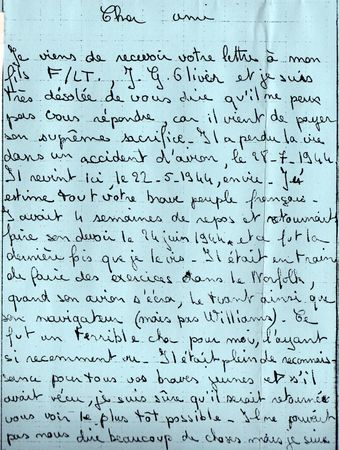 Cher ami
Je viens de recevoir votre lettre à mon
fils F/LT., J. G. Oliver et je suis
très désolée de vous dire qu'il ne peux
pas vous répondre, car il vient de payer
son suprêmes sacrifice. Il a perdu la vie
dans un accident d'avion, le 28-7-1944.
Il revint ici, le 22-5-1944, envie. J'ai
estime tout votre brave peuple français.
J avait 4 semaines de repos et retournait
faire son devoir le 24 juin 1944, et ce fut la
dernière fois que je le vis. Il était en train
de faire des exercices dans le Norfolk,
quand son avion s'écra, le tuant ainsi que
son navigateur (mais pas Williams). Ce
fut un terrible choc pour moi, l'ayant
si recemment vu. Il était plein de reconnais-
sance pour tous vos braves jeunes et s'il
avait vécu, je suis sûre qu'il serait retourné
vous voir le plus tôt possible. Il ne pouvait
pas nous dire beaucoup de choses mais je suis